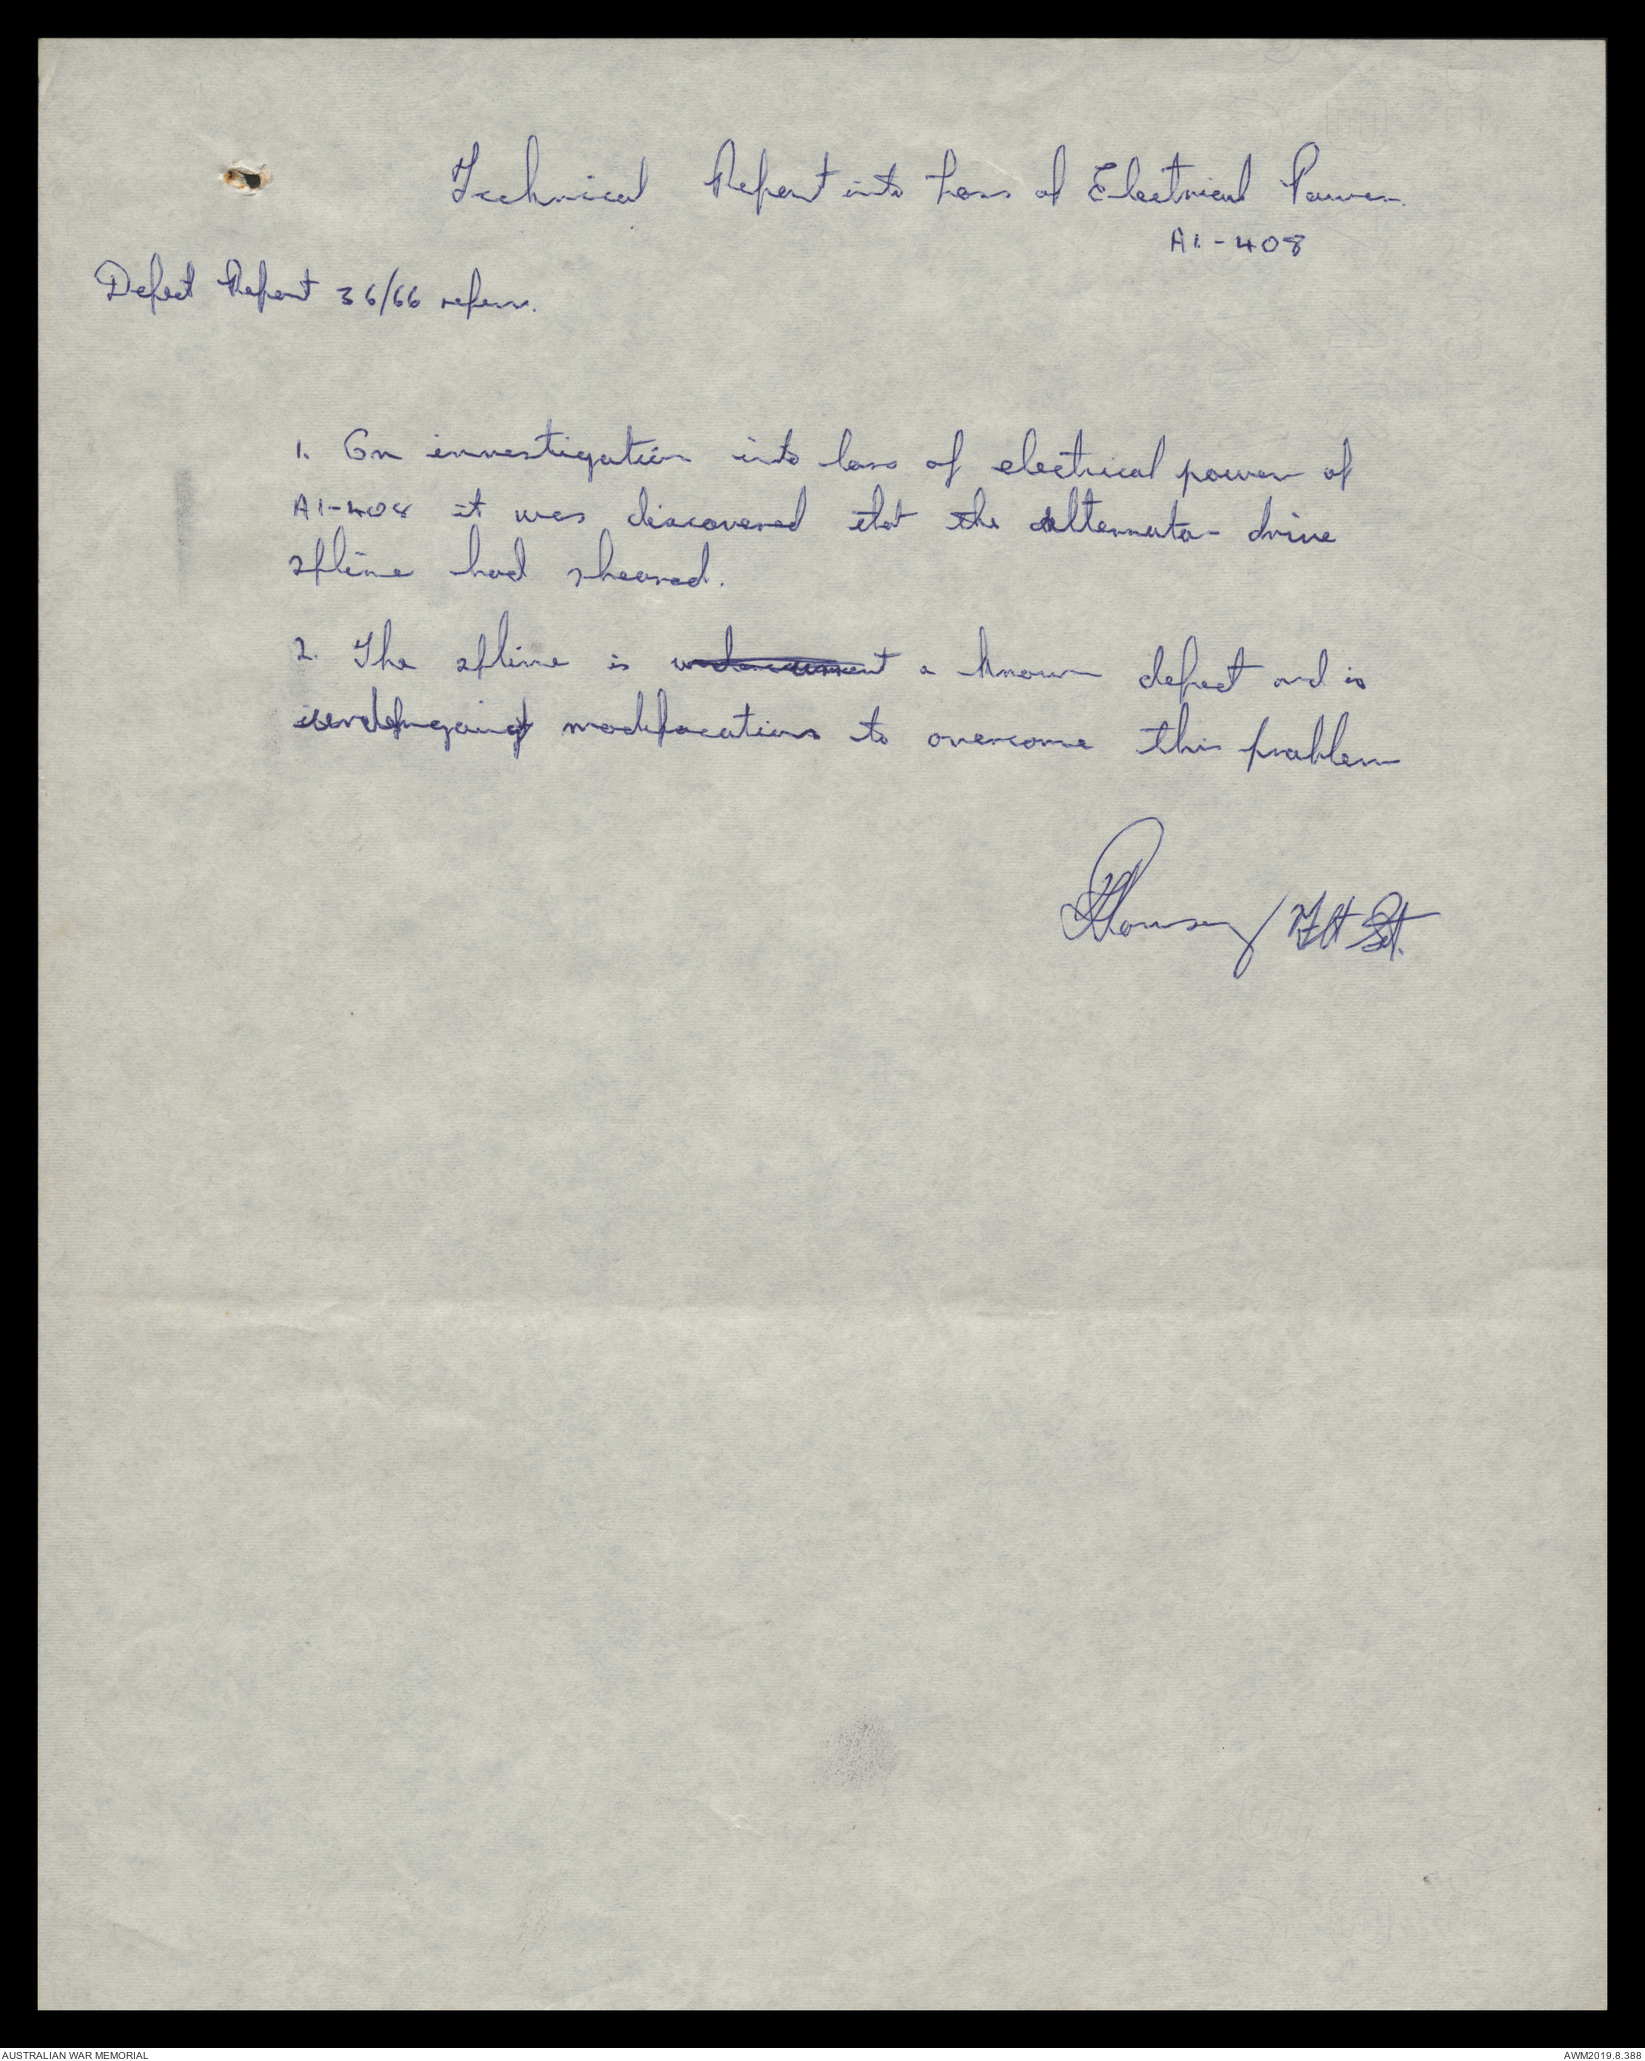 Technical Report into Loss of Electrical Power
A1-408
Defect Report 36/66 refers.
1. On investigation into loss of electrical power of
A1-408 it was discovered that the alternator drive
spline had sheared.
2. The spline is a known defect and is
undergoing modifications to overcome this problem
Flt Sgt.
AUSTRALIAN WAR MEMORIAL
AWM2019.8.388